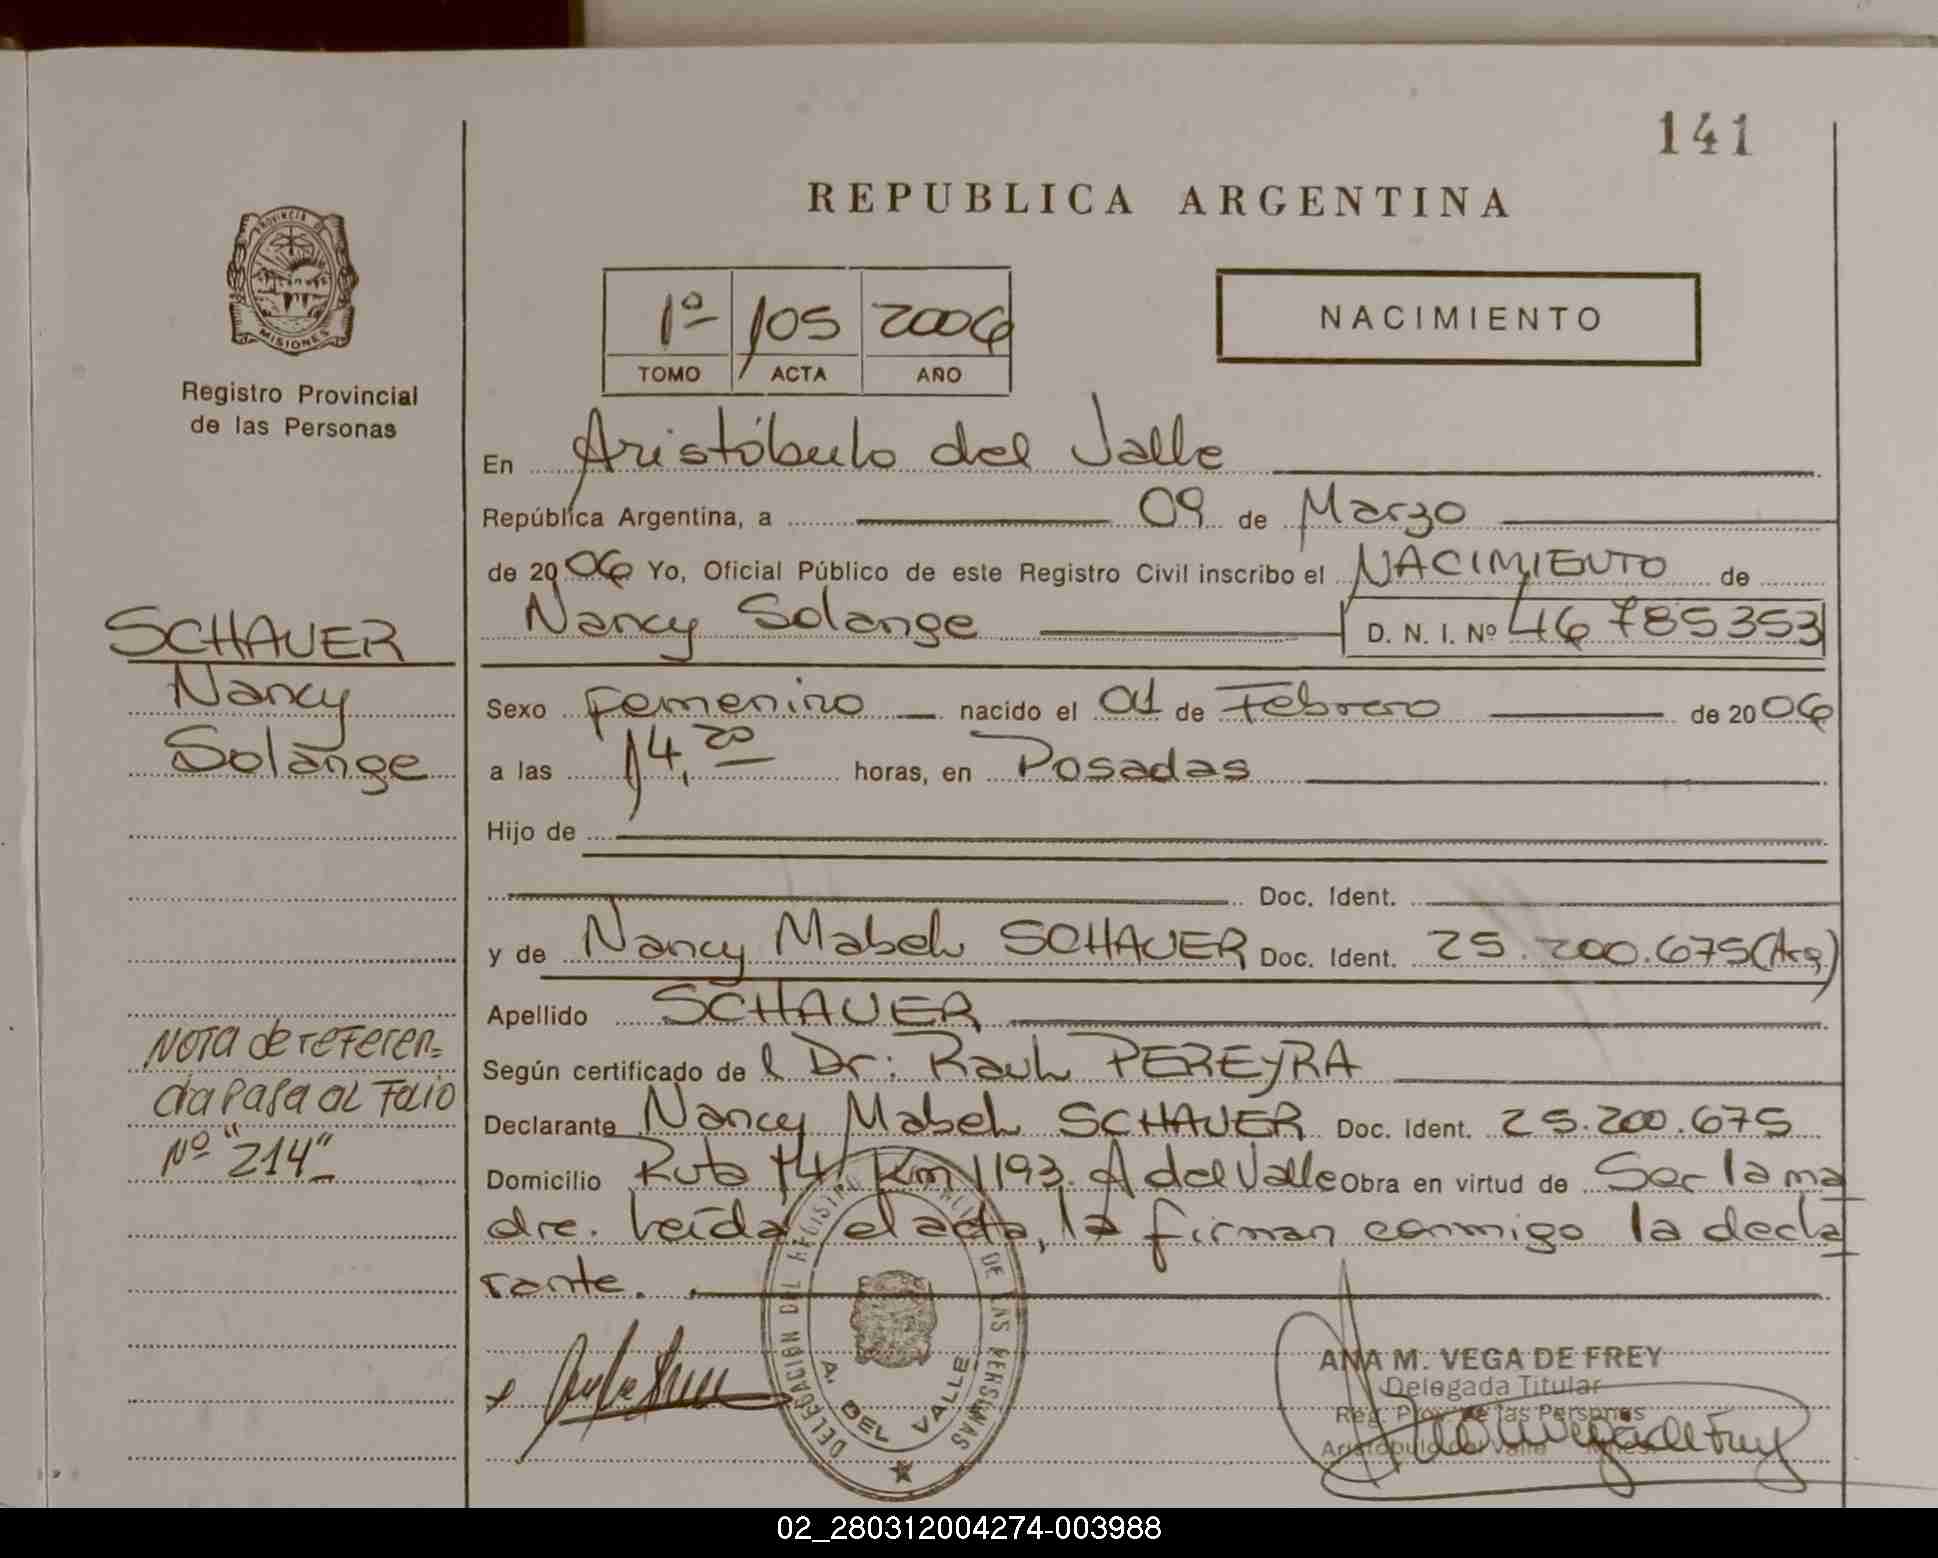 141
REPUBLICA ARGENTINA
PROVINCIA DE
MISIONES
Registro Provincial
de las Personas
1º 105 2006
TOMO ACTA AÑO
NACIMIENTO
En Aristóbulo del Valle
República Argentina, a 09 de Marzo
de 2006 Yo, Oficial Público de este Registro Civil inscribo el NACIMIENTO de
Nancy Solange D. N. I. Nº 46785353
SCHAUER
Nancy
Solange
Sexo femenino nacido el 01 de Febrero de 2006
a las 14,20 horas, en Posadas
Hijo de
Doc. Ident.
y de Nancy Mabel SCHAUER Doc. Ident. 25.200.675 (Arg.)
Apellido SCHAUER
Según certificado de l Dr: Raul PEREYRA
Declarante Nancy Mabel SCHAUER Doc. Ident. 25.200.675
Domicilio Ruta 14 Km 1193. A del Valle Obra en virtud de Ser la ma
dre. Leída el acta, la firman conmigo la decla
rante.
NOTA de referen-
cia pasa al Folio
Nº "214"
DELEGACIÓN DEL REGISTRO PROVINCIAL DE LAS PERSONAS
A. DEL VALLE
ANA M. VEGA DE FREY
Delegada Titular
Reg. Prov. de las Personas
Aristóbulo del Valle
02_280312004274-003988